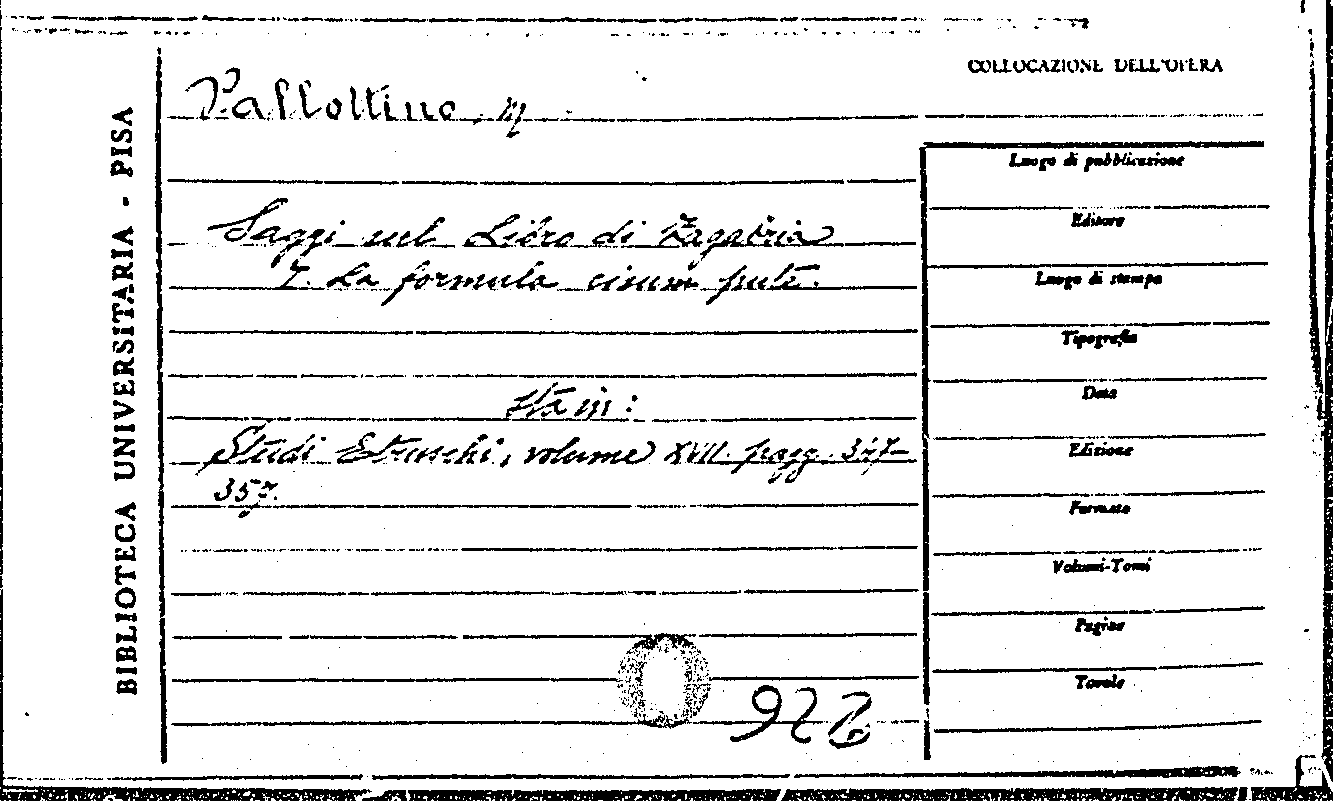 COLLOCAZIONE DELL'OPERA
Pallottino, M.
BIBLIOTECA UNIVERSITARIA - PISA
Saggi sul Libro di Zagabria
7. La formula cisum pute.
sta in:
Studi Etruschi, volume XVII. pagg. 347-
357.
Luogo di pubblicazione
Editore
Luogo di stampa
Tipografia
Data
Edizione
Formato
Volumi-Tomi
Pagine
Tavole